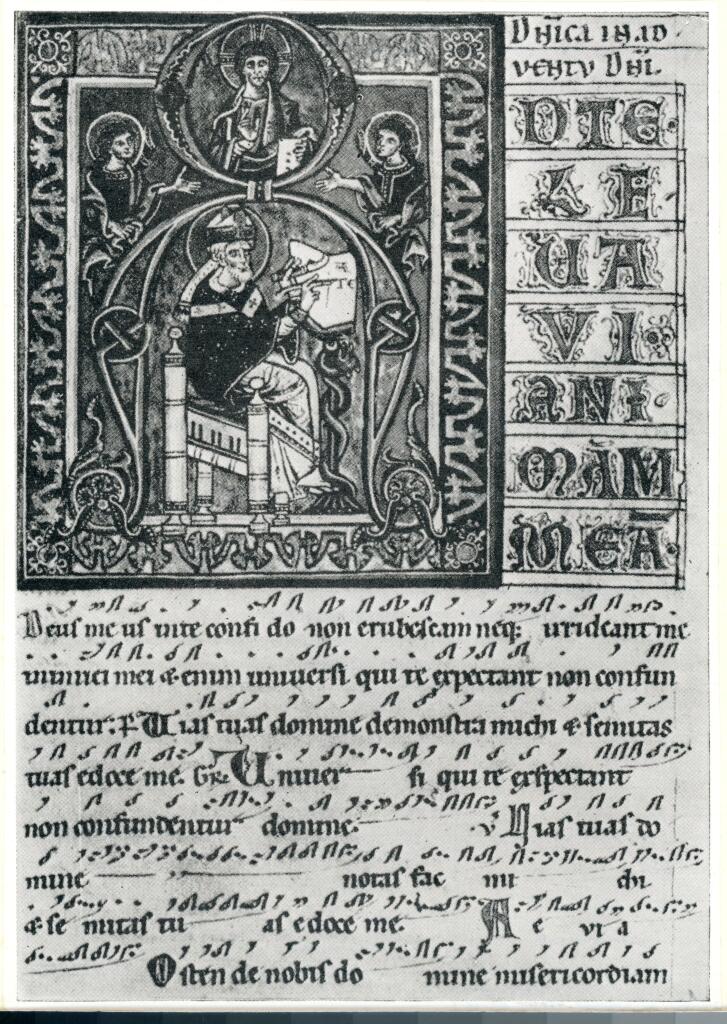 Dn̄ica in ad
ventu Dn̄i.
A
D TE
LE
UA
VI
ANI
MAM
MEĀ
Deus me us in te confi do non erubescam neq; irrideant me
inimici mei & enim universi qui te expectant non confun
dentur. P̄ Vias tuas domine demonstra michi & semitas
tuas edoce me. GR̄. Univer si qui te exspectant
non confundentur domine. v Vias tuas do
mine notas fac mi chi
& se mitas tu as edoce me. A e vi a
Osten de nobis do mine misericordiam